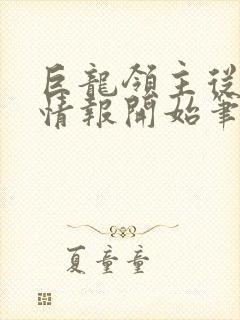 巨龍領主從
情報開始筆
夏童童